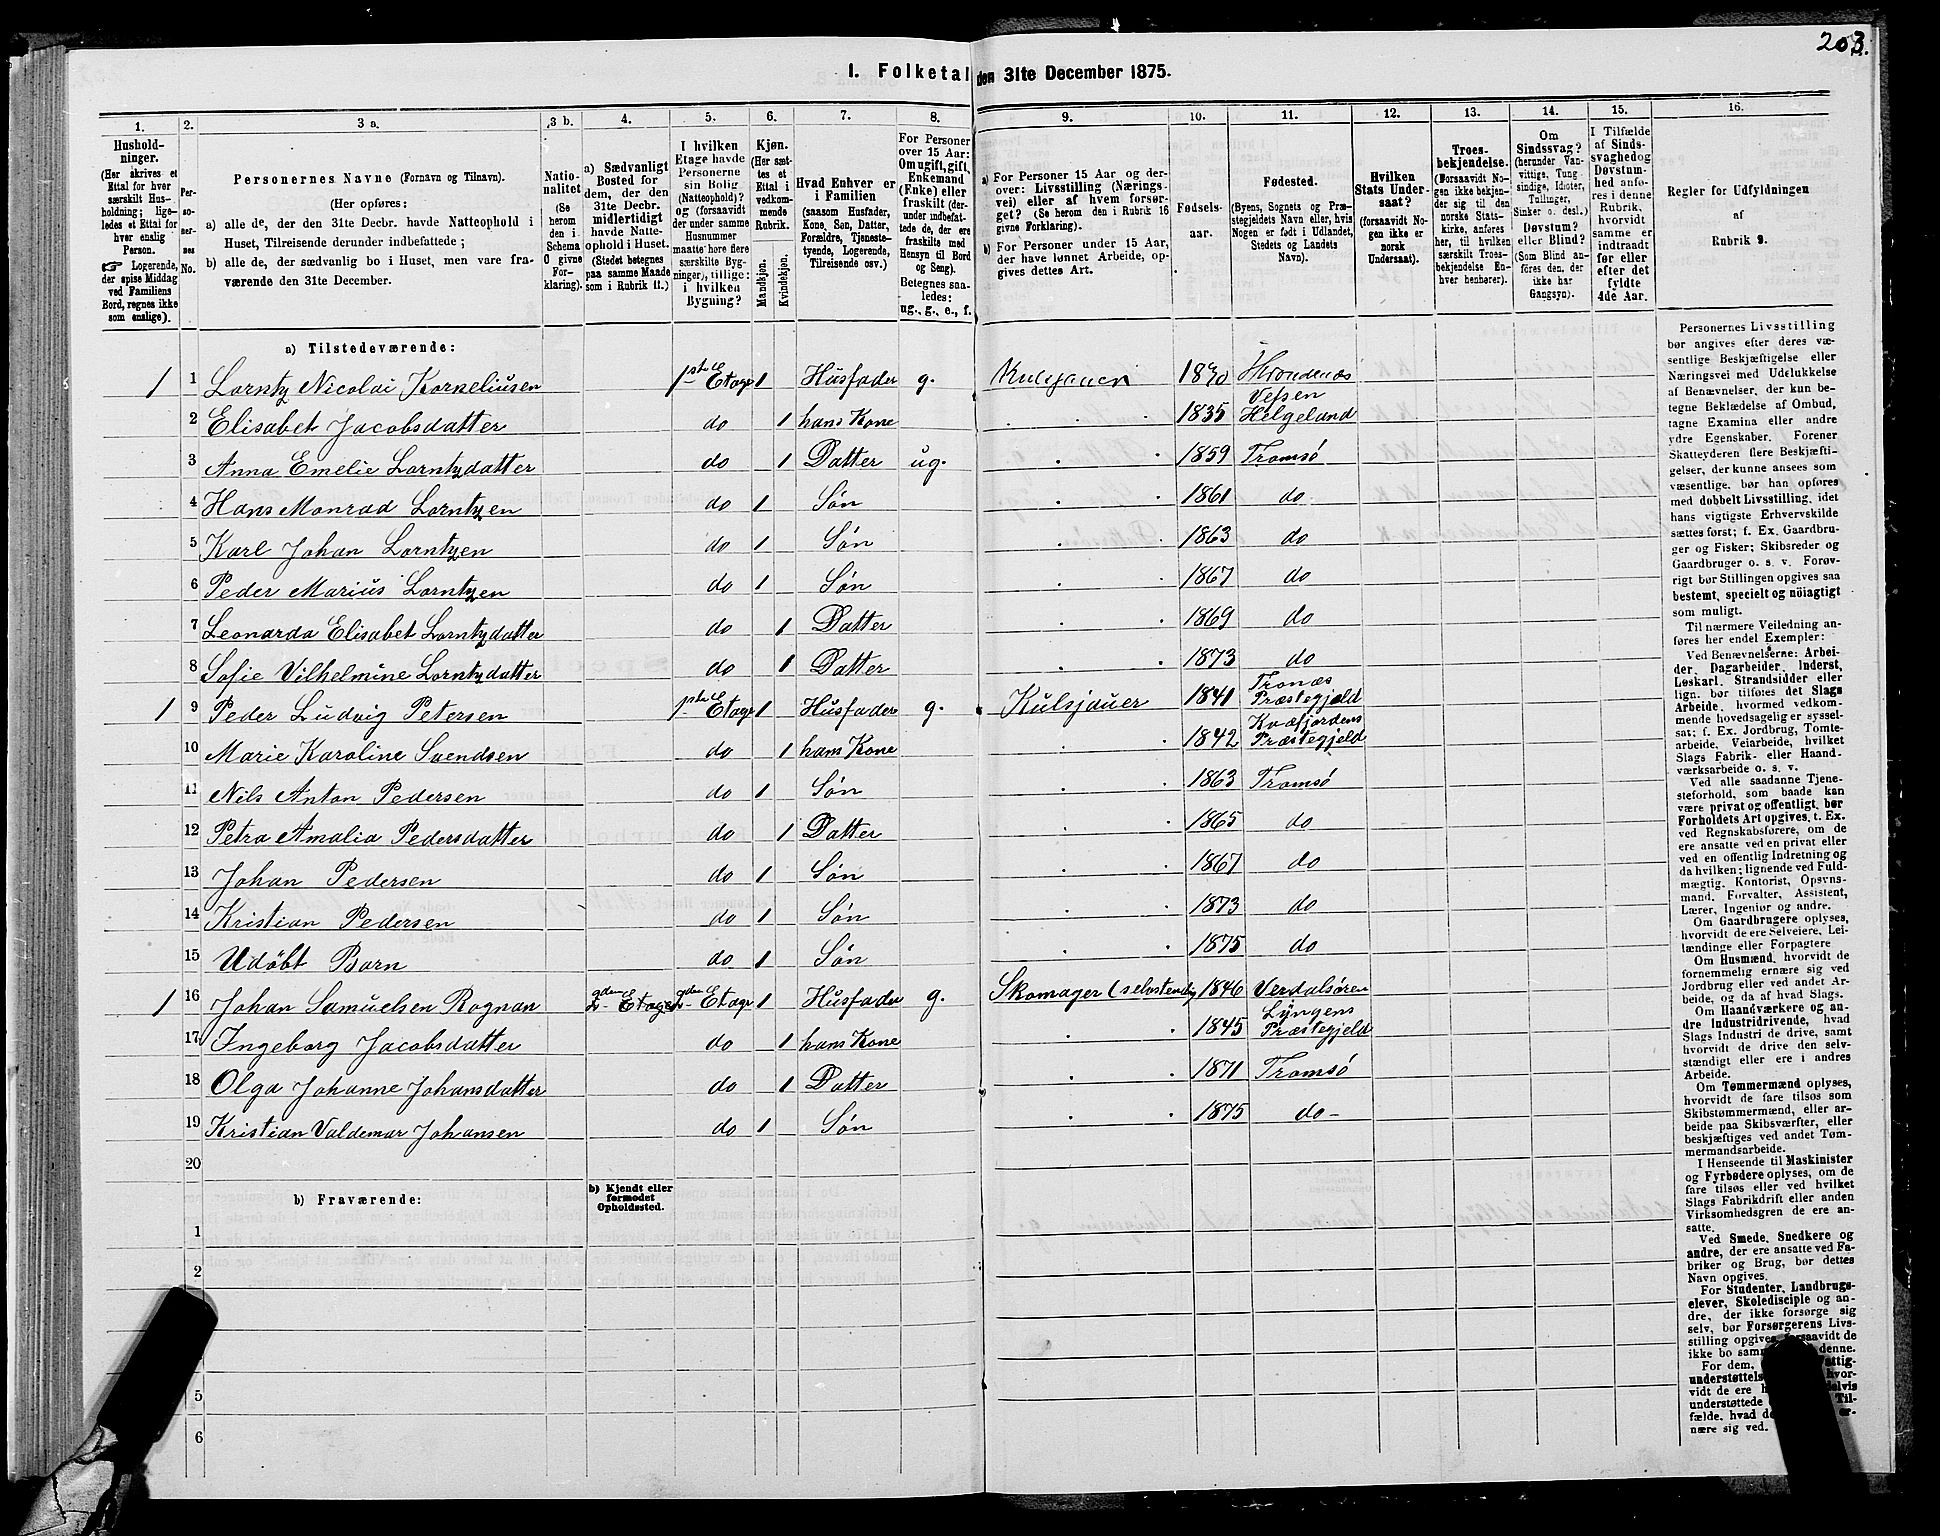 203.
I. Folketal den 31te December 1875.
1. 2. 3 a. 3 b. 4. 5. 6. 7. 8. 9. 10. 11. 12. 13. 14. 15. 16.
Husholdninger.
(Her skrives et
Ettal for hver
særskilt Husholdning;
ligeledes
et Ettal for
hver enslig
Person.
☞ Logerende,
der spise Middag
ved Familiens
Bord, regnes ikke
som enslige).
Personernes No.
Personernes Navne (Fornavn og Tilnavn).
(Her opføres:
a) alle de, der den 31te Decbr. havde Natteophold i
Huset, Tilreisende derunder indbefattede;
b) alle de, der sædvanlig bo i Huset, men vare fraværende
den 31te December.
Nationalitet
(Se
herom
den i
Schema
O givne
Forklaring).
a) Sædvanligt
Bosted for
dem, der den
31te Decbr.
midlertidigt
havde Natteophold
i Huset.
(Stedet betegnes
paa samme Maade
som i Rubrik 11.)
I hvilken
Etage havde
Personerne
sin Bolig
(Natteophold)?
og (forsaavidt
der under samme
Husnummer
maatte høre flere
særskilte Bygninger),
tillige:
i hvilken
Bygning?
Kjøn.
(Her sættes
et
Ettal i
vedkommende
Rubrik.
Mandkjøn.
Kvindekjøn.
Hvad Enhver er
i Familien
(saasom Husfader,
Kone, Søn, Datter,
Forældre, Tjenestetyende,
Logerende,
Tilreisende osv.)
For Personer
over 15 Aar:
Om ugift, gift,
Enkemand
(Enke) eller
fraskilt (derunder
indbefattede
de, der ere
fraskilte med
Hensyn til Bord
og Seng).
Betegnes saaledes:
ug., g., e., f.
a) For Personer 15 Aar og derover:
Livsstilling (Næringsvei)
eller af hvem forsørget?
(Se herom den i Rubrik 16
givne Forklaring).
b) For Personer under 15 Aar,
der have lønnet Arbeide, opgives
dettes Art.
Fødselsaar.
Fødested.
(Byens, Sognets og Præstegjeldets
Navn eller, hvis
Nogen er født i Udlandet,
Stedets og Landets
Navn).
Hvilken
Stats Undersaat?
(forsaavidt Nogen
ikke er
norsk
Undersaat).
Troesbekjendelse.
(Forsaavidt Nogen
ikke bekjender
sig til den
norske Statskirke,
anføres
her, til hvilken
særskilt Troesbekjendelse
Enhver
henhører).
Om
Sindssvag?
(herunder Vanvittige,
Tungsindige,
Idioter,
Tullinger,
Sinker o. desl.)
Døvstum?
eller Blind?
(Som Blind anføres
den, der
ikke har
Gangsyn).
I Tilfælde
af Sindssvaghed
og
Døvstumhed
anføres
i denne
Rubrik,
hvorvidt
samme er
indtraadt
før eller
efter det
fyldte
4de Aar.
Regler for Udfyldningen
af
Rubrik 9.
a) Tilstedeværende:
1 1 Lorntz Nicolai Korneliusen 1ste Etage 1 Husfader g. 18 0
2 Elisabet Jacobsdatter do 1 hans Kone 1835 Vefsen Helgeland
3 Anna Emelie Lorntzdatter do 1 Datter ug. 1859 Tromsø
4 Hans Monrad Lorntzen do 1 Søn 1861 do
5 Karl Johan Lorntzen do 1 Søn 1863 do
6 Peder Marius Lorntzen do 1 Søn 1867 do
7 Leonarda Elisabet Lorntzdatter do 1 Datter 1869 do
8 Sofie Vilhelmine Lorntzdatter do 1 Datter 1873 do
1 9 Peder Ludvig Petersen 1ste Etage 1 Husfader g. Kulsjauer 1841 Tronæs Præstegjeld
10 Marie Karoline Svendsen do 1 hans Kone 1842 Kvæfjordens Præstegjeld
11 Nils Anton Pedersen do 1 Søn 1863 Tromsø
12 Petra Amalia Pedersdatter do 1 Datter 1865 do
13 Johan Pedersen do 1 Søn 1867 do
14 Kristian Pedersen do 1 Søn 1873 do
15 Udøbt Barn do 1 Søn 1875 do
1 16 Johan Samuelsen Rognan 2den Etage 2den Etage 1 Husfader g. Skomager (selvstendig 1846 Verdalsøren
17 Ingeborg Jacobsdatter do 1 hans Kone 1845 Lyngens Præstegjeld
18 Olga Johanne Johansdatter do 1 Datter 1871 Tromsø
19 Kristian Valdemar Johansen do 1 Søn 1875 do -
20
b) Fraværende:
b) Kjendt eller
formodet
Opholdssted.
1
2
5
6
Personernes Livsstilling
bør angives efter deres væsentlige
Beskjæftigelse eller
Næringsvei med Udelukkelse
af Benævnelser, der kun betegne
Beklædelse af Ombud,
tagne Examina eller andre
ydre Egenskaber. Forener
Skatteyderen flere Beskjæftigelser,
der kunne ansees som
væsentlige, bør han opføres
med dobbelt Livsstilling, idet
hans vigtigste Erhvervskilde
sættes først; f. Ex. Gaardbruger
og Fisker; Skibsreder og
Gaardbruger o. s. v. Forøvrigt
bør Stillingen opgives saa
bestemt, specielt og nöiagtigt
som muligt.
Til nærmere Veiledning anføres
her endel Exempler:
Ved Benævnelserne: Arbeider,
Dagarbeider, Inderst,
Løskarl, Strandsidder eller
lign. bør tilføies det Slags
Arbeide, hvormed vedkommende
hovedsagelig er sysselsat;
f. Ex. Jordbrug, Tomtearbeide,
Veiarbeide, hvilket
Slags Fabrik- eller Haandværksarbeide
o. s. v.
Ved alle saadanne Tjenesteforhold,
som baade kan
være privat og offentligt, bør
Forholdets Art opgives, t. Ex.
ved Regnskabsførere, om de
ere ansatte ved en privat eller
ved en offentlig Indretning og
da hvilken; lignende ved Fuldmægtig,
Kontorist, Opsynsmand,
Forvalter, Assistent,
Lærer, Ingeniør og andre.
Om Gaardbrugere oplyses,
hvorvidt de ere Selveiere, Leilændinge
eller Forpagtere
Om Husmænd, hvorvidt de
fornemmelig ernære sig ved
Jordbrug eller ved andet Arbeide,
og da af hvad Slags.
Om Haandværkere og andre
Industridrivende, hvad
Slags Industri de drive, samt
hvorvidt de drive den selvstændigt
eller ere i andres
Arbeide.
Om Tømmermænd oplyses,
hvorvidt de fare tilsøs som
Skibstømmermænd, eller arbeide
paa Skibsværfter, eller
beskjæftiges ved andet Tømmermandsarbeide.
I Henseende til Maskinister
og Fyrbødere oplyses, om de
fare tilsøs eller ved hvilket
Slags Fabrikdrift eller anden
Virksomhedsgren de ere ansatte.
Ved Smede, Snedkere og
andre, der ere ansatte ved Fabriker
og Brug, bør dettes
Navn opgives.
For Studenter, Landbrugselever,
Skoledisciple og andre,
der ikke forsørge sig
selv, bør Forsørgerens Livsstilling
opgives, forsaavidt de
ikke bo sammen denne.
For dem,
understøttelse
vidt de ere
understøttede
fælde, hvad
nære sig ved.